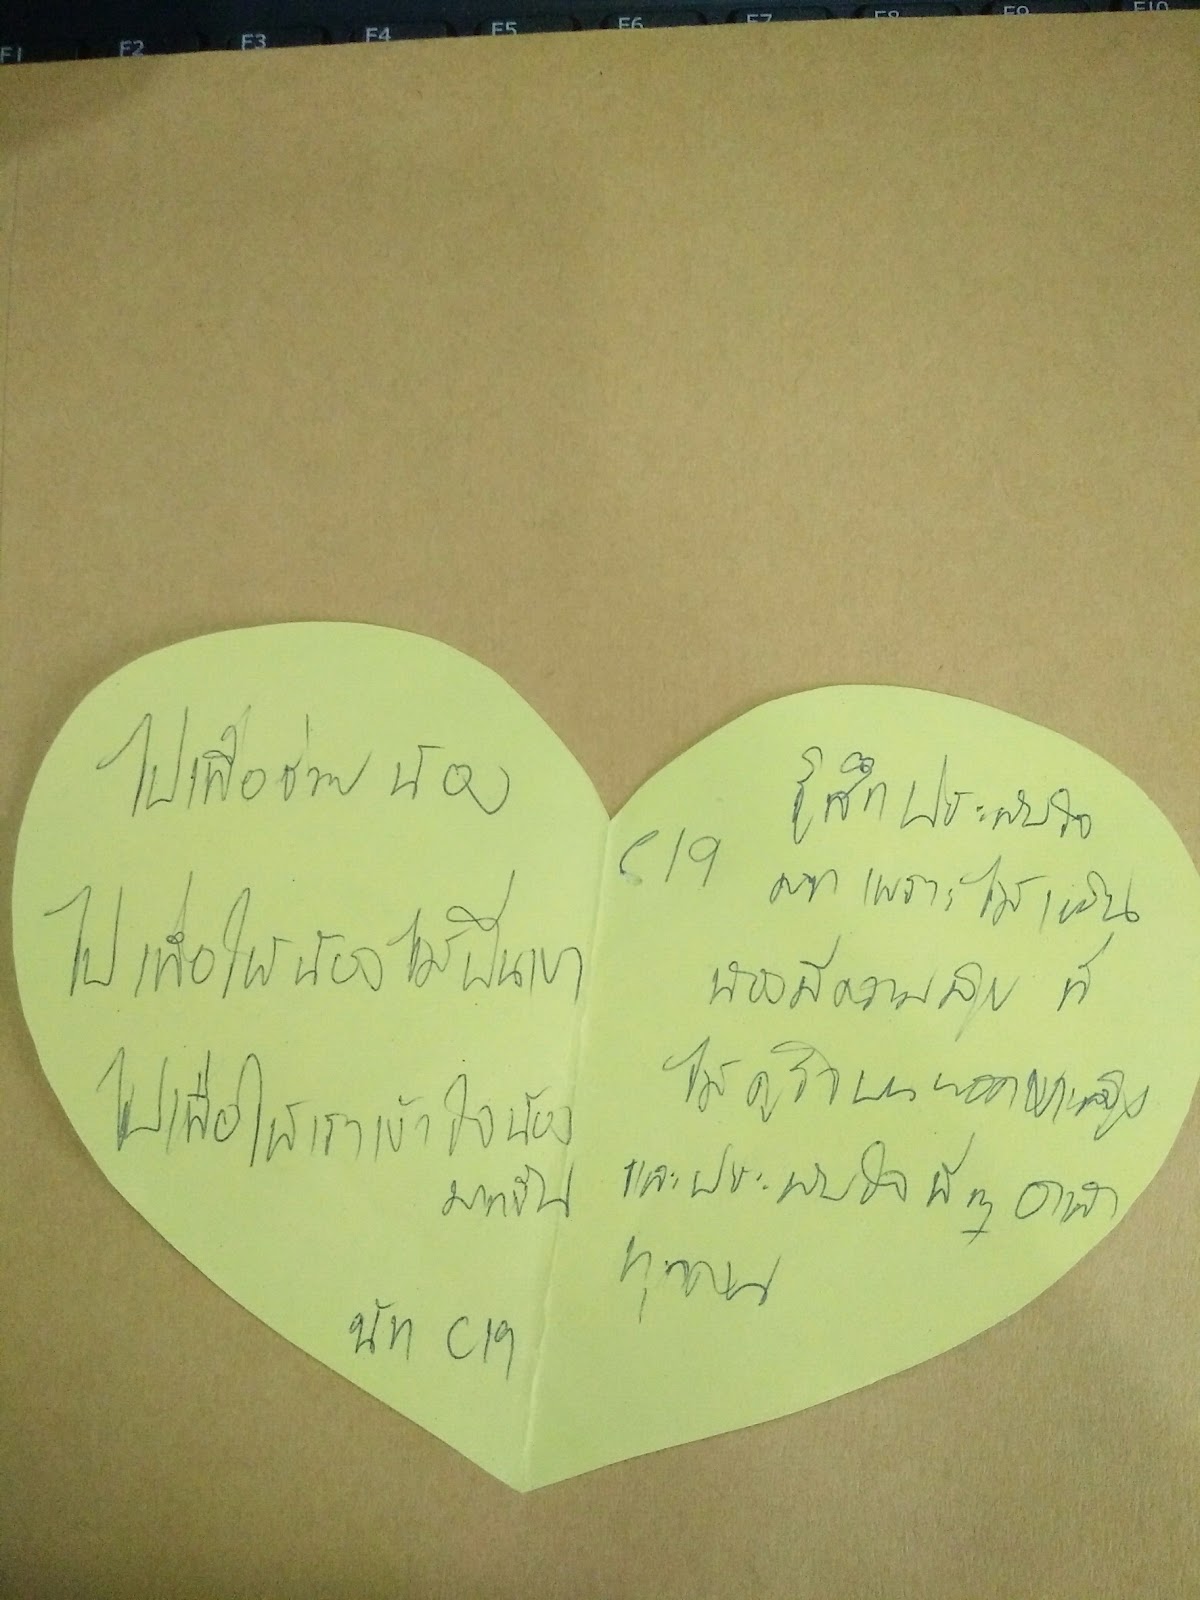 F1 F2 F3 F4 F5 F6 F7 F8 F9 F10
ไปเพื่อช่วย น้อง
ไปเพื่อให้น้องได้ปีนเขา
ไปเพื่อให้เราเข้าใจน้อง
มากขึ้น
นัท C19
C19
รู้สึกประทับใจ
มาก เพราะได้เห็น
น้องมีความสุข ที่
ได้ บนยอดเขา
และประทับใจพี่ๆ อาสา
ทุกคน